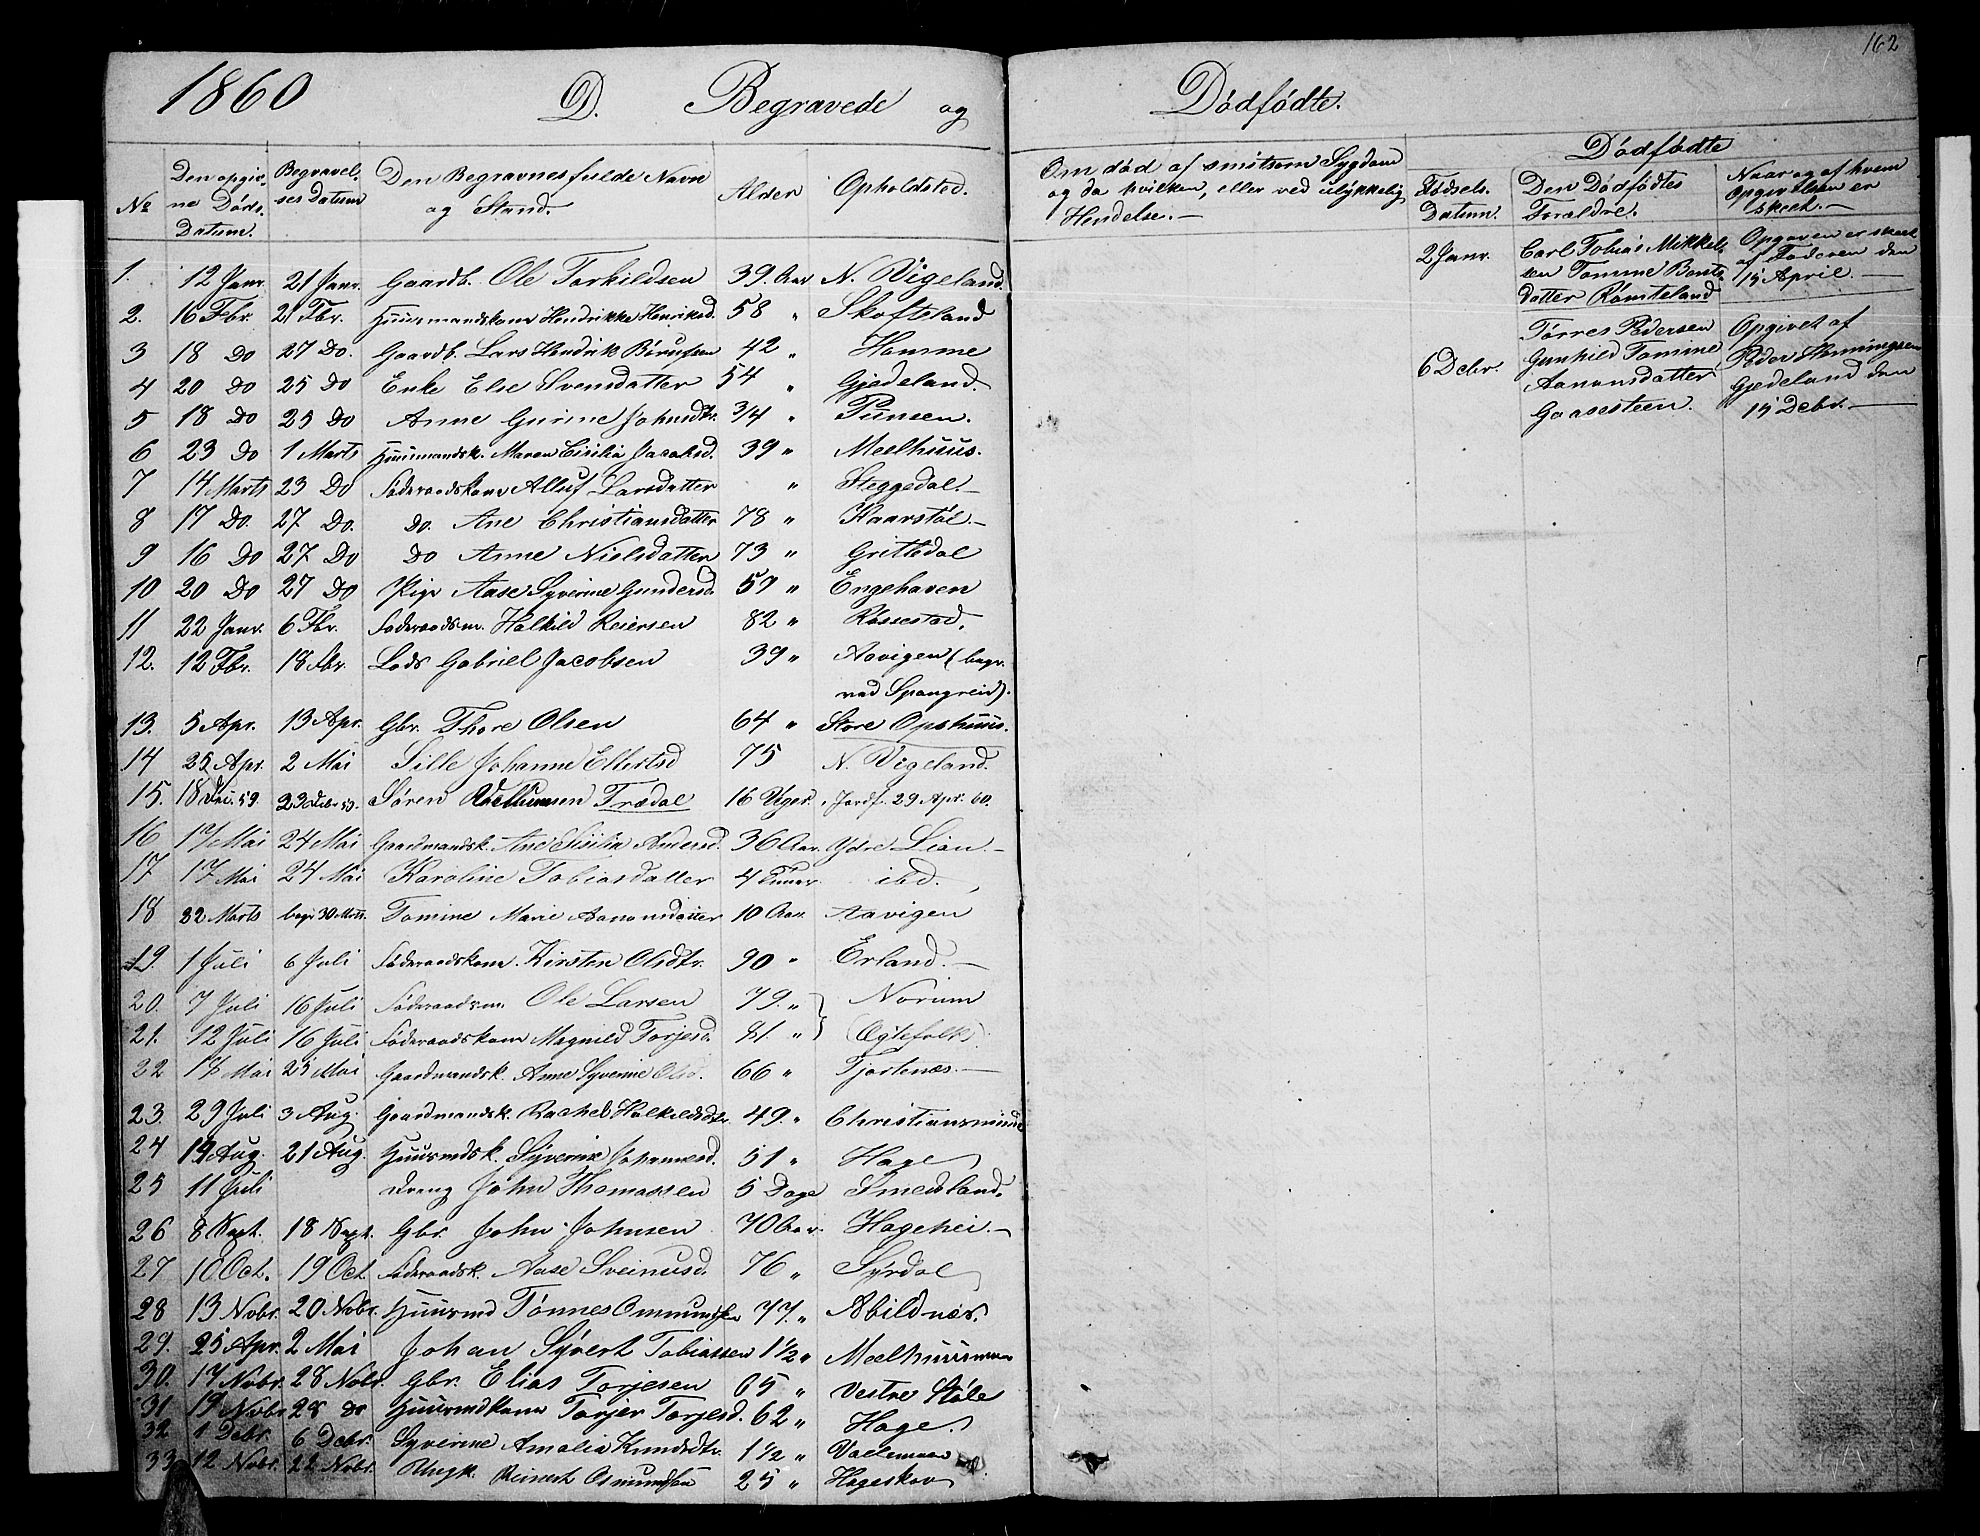 162
1860 D. Begravede og Dødfødte.
No Den opgivne Døds-Datum. Begravelses Datum Den Begravnes fulde Navn og Stand. Alder Opholdsted.
Om død af smitsom Sygdom og da hvilken, eller ved ulykkelig Hendelse.—
Dødfødte
Fødsels-Datum. Den Dødfødtes Forældre. Naar og af hvem Opgivelsen er skeet.—
1. 12 Janr. 21 Janr. Gaardb. Ole Torkildsen 39. Aar N. Vigeland.
2. 16 Fbr. 21 Fbr. Huusmandskone Hendrikke Henriksd. 58 " Skofteland
3 18 Do 27 Do. Gaardb. Lars Hendrik Børufsen 42 " Homme
4 20 Do 25 Do Enke Else Svensdatter 54 " Gjedeland.
5 18 Do 25 Do Anne Gurine Johnsdtr. 3/4 " Tunsen.
6 23 Do 1 Marts Huusmandsk. Maren Cicilia Jacobsd. 39 " Meelhuus.
7 14 Marts 23 Do Føderaadskone Alluf Larsdatter " Steggedal.—
8 17 Do. 27 Do. Do. Ane Christiansdatter 78 " Kaarstøl.—
9 16 Do 27 Do Do Anne Nielsdatter 73 " Grittedal
10 20 Do 27 Do Pige Aase Syverine Gundersd. 59 " Engehaven
11 22 Janr. 6 Fbr. Føderaadsm. Halkild Reiersen 82 " Røssestad.
12. 12 Fbr. 18 Fbr. Lods Gabriel Jacobsen 39 " Aavigen (begr.
ved Spangreid).
13. 5 Apr. 13 Apr. Gbr. Thore Olsen 64 " Store Opshuus.
14 25 Apr. 2 Mai Sille Johanne Ellertsd 75 N. Vigeland.
15. 18 59. 23 Debr 59. Søren Trædal 16 Uger. Jordf. 29 Apr. 60.
16 17 Mai 24 Mai Gaardmandsk. Ane Cicilia Andersd. 36 Aar. Ydre Lian.—
17 17 Mai 24 Mai Karoline Tobiasdatter 4 Timer ibd.
18 22 Marts begr 30 Mrts. Tomine Marie Aanonsdatter 10 Aar Aavigen
19. 1 Juli 6 Juli Føderaadskone. Kirsten Olsdtr. 90 " Erland.—
20. 7 Juli 16 Juli Føderaadsm. Ole Larsen 79. " Norum
21. 12 Juli 16 Juli Føderaadskone Magnild Torjesd. 81. " (Ægtefolk)
22 17 Mai 25 Mai Gaardmandsk. Anne Syverine Olsd. 66 " Tjortenæs.—
23. 29 Juli 3 Aug. Gaardmandsk. Rachel Halkildsdtr. 49. " Christiansminde
24 19 Aug. 21 Aug. Huusmdsk. Syverine Johannesd. 51 " Hage
25 11 Juli Dreng John Thomassen 5 Dage Smedsland.
26 8 Sept. 18 Sept. Gbr. John Johnsen 70 Aar. Hagehei.—
27 10 Oct. 19 Oct. Føderaadsk. Aase Sveinusd. 76 " Syrdal
28 13 Nobr. 20 Nobr. Huusmd Tønnes Ommundsen 77. " Abildnæs.
29. 25 Apr. 2 Mai Johan Syvert Tobiassen 1 1/2 " Meelhuusmoen
30. 17 Nobr. 28 Nobr. Gbr. Elias Torjesen 65 " Vestre Støle
31 19 Nobr 28 do Huusmdkone Torjer Torjesd. 62 " Hage
32 1 Debr. 6 Debr. Syverine Amalia Knudsdtr. 1 1/2 " Vallemoen
33 12 Nobr. 22 Nobr. Ungk. Reinert Osmundsen 25 " Hageskov
2 Janr. Carl Tobias Mikkelsen Tomine Bentsdatter Rømteland Opgaven er skeet af Faderen den 15 April.—
6 Debr. Tørres Pedersen Gunhild Tomine Aanonsdatter Gaasesteen. Opgivet af Peder Henningsen Gjedeland den 15 Debr.—